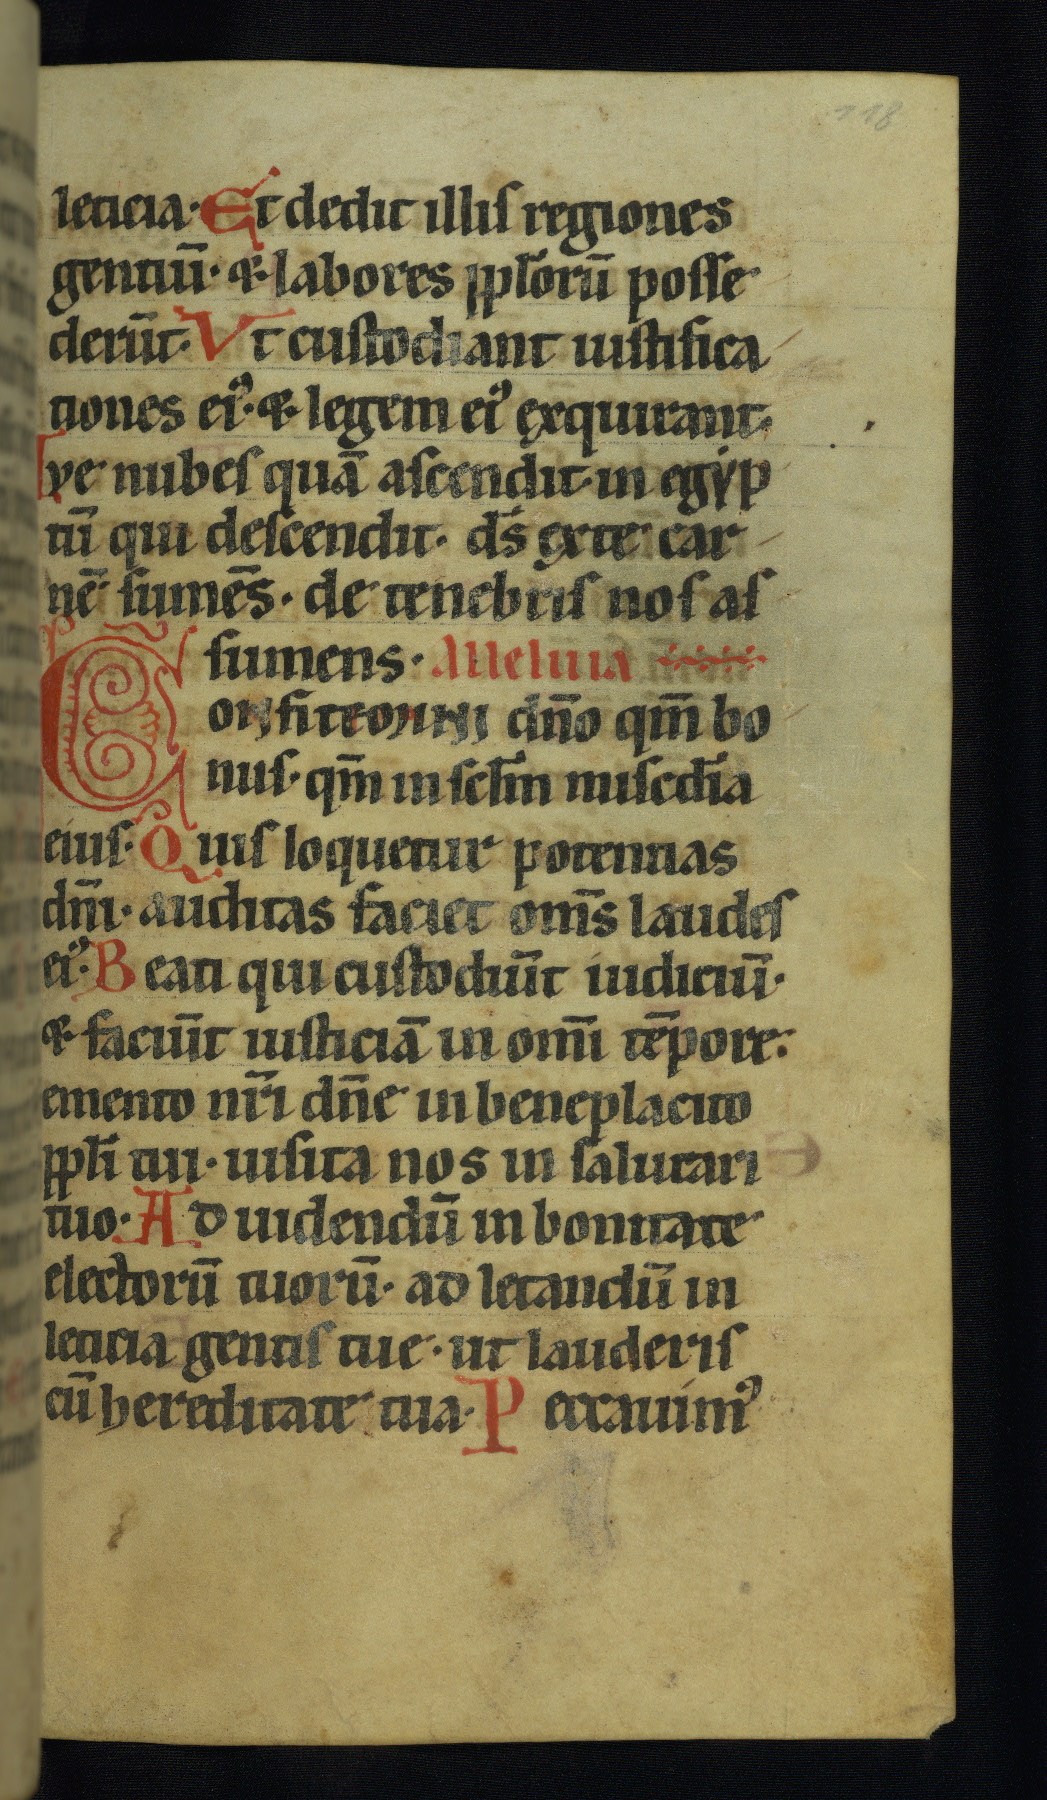 118
leticia· Et dedit illiſ regiones
gentiū· & labores pplorū poſſe
derūt· Vt cuſtodiant iuſtifica
tiones ei᾿· & legem ei᾿ exquirant·
ve nubeſ quā aſcendit· in egẏp
tū qui deſcendit· dſ̄ exte car
nē ſumēs· de tenebriſ noſ aſ
ſumens· Alleluia
Confitemini dn̄o qm̄ bo
nuſ· qm̄ in ſcl̄m miſcd̄ia
eiuſ· Quiſ loquetur potentias
dn̄i· auditas faciet om̄s laudeſ
ei᾿· Beati qui cuſtodiūt iudiciū·
& faciūt iuſticiā in om̄i tēpore·
emento nr̄i dn̄e in beneplacito
ppl̄i tui· uiſita nos in ſalutari
tuo· Ad uidendū in bonitate
electorū tuorū· ad letandū in
leticia gentiſ tue· ut lauderiſ
cū hereditate tua· Peccauim᾿